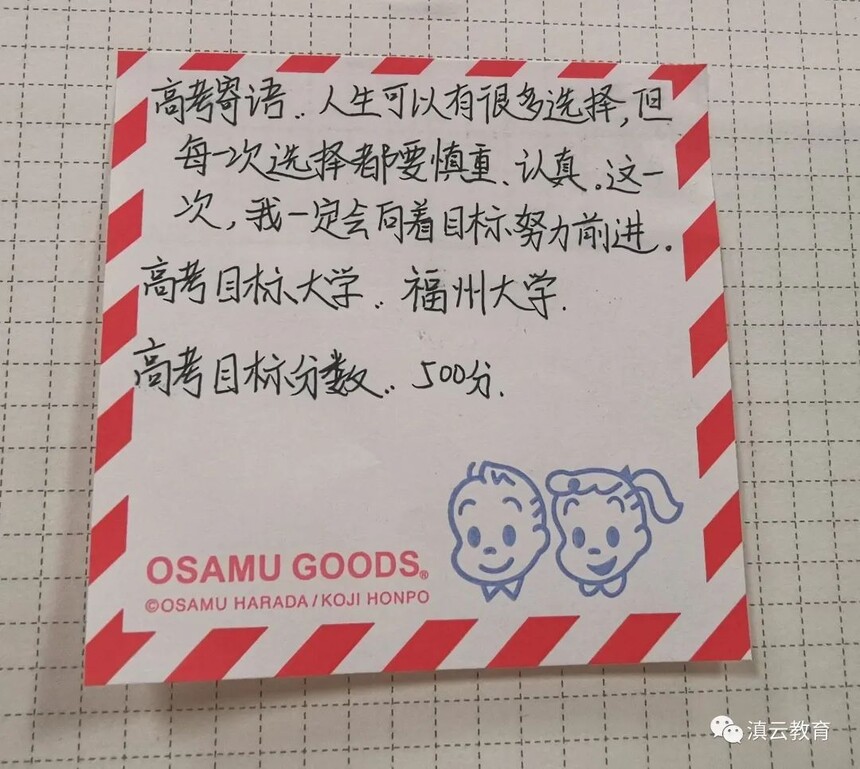 高考寄语：人生可以有很多选择，但
每一次选择都要慎重、认真。这一
次，我一定会向着目标努力前进。
高考目标大学：福州大学.
高考目标分数：500分.
OSAMU GOODS®
©OSAMU HARADA/KOJI HONPO
滇云教育